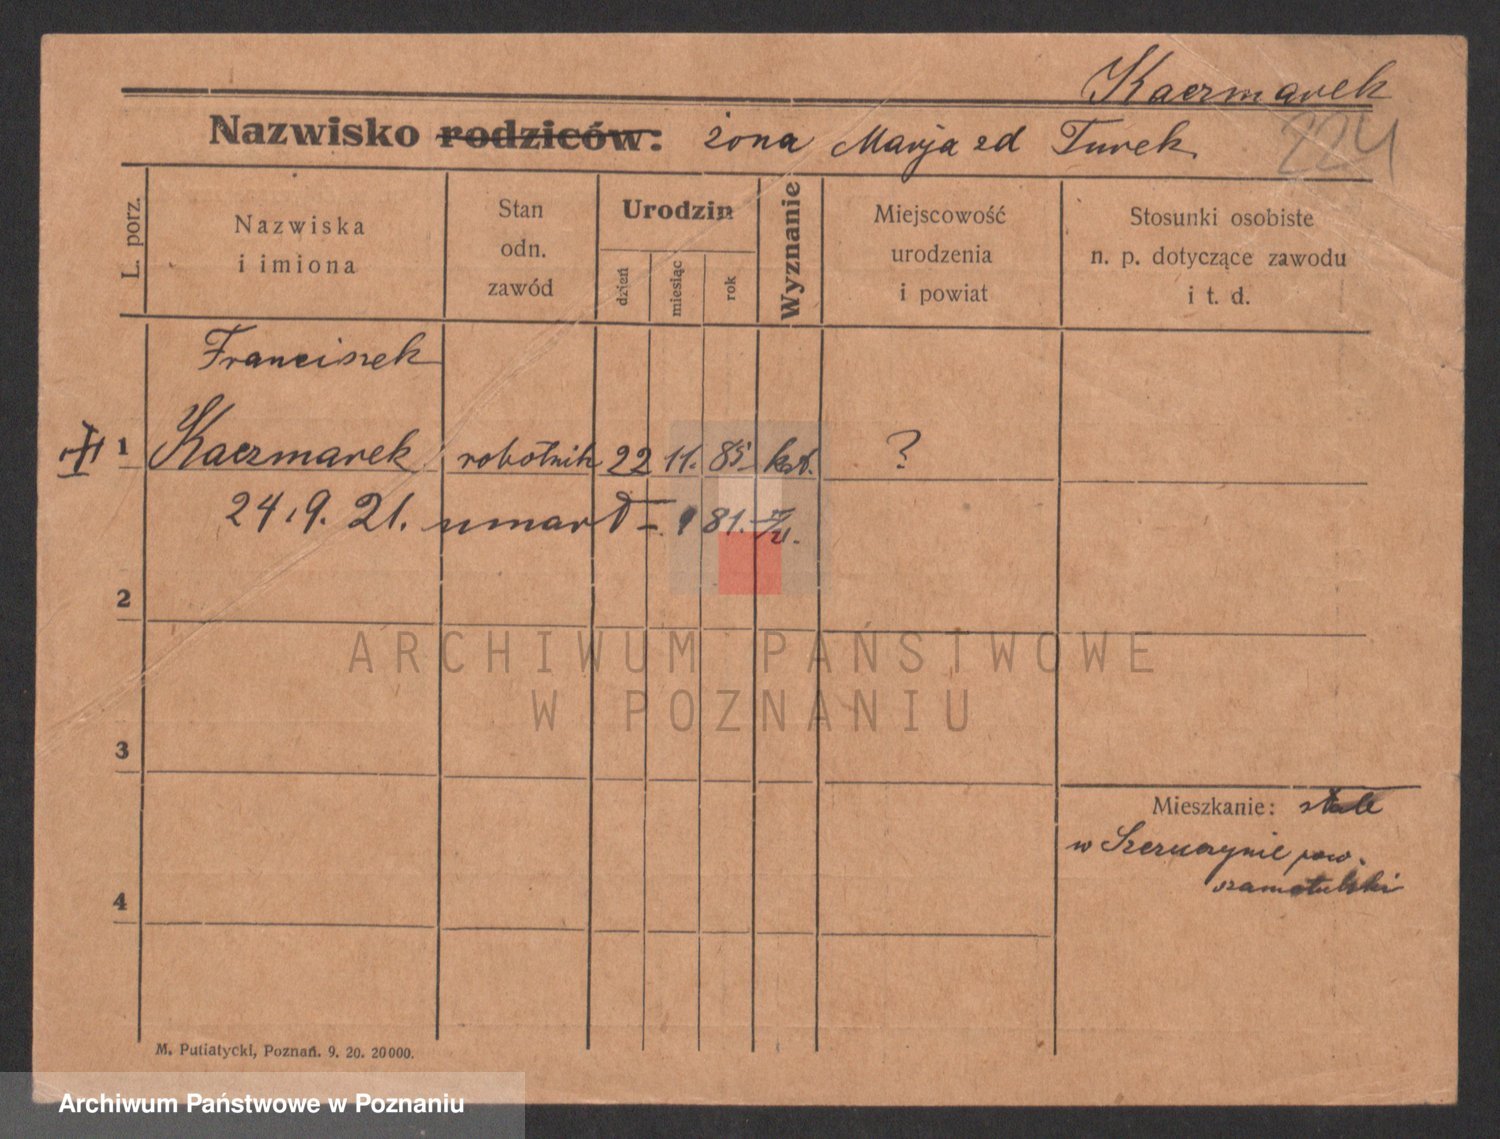 Kaczmarek
Nazwisko rodziców: żona Marja zd Turek
224
L. porz.
Nazwiska
i imiona
Stan
odn.
zawód
Urodzin
dzień
miesiąc
rok
Wyznanie
Miejscowość
urodzenia
i powiat
Stosunki osobiste
n. p. dotyczące zawodu
i t. d.
Franciszek
1 Kaczmarek robotnik 22 11. 85 kat. ?
24.9.21. umarł 81.
2
ARCHIWUM PAŃSTWOWE
W POZNANIU
3
Mieszkanie: stale
w Szczuczynie pow.
szamotulski
4
M. Putiatycki, Poznań. 9. 20. 20000.
Archiwum Państwowe w Poznaniu